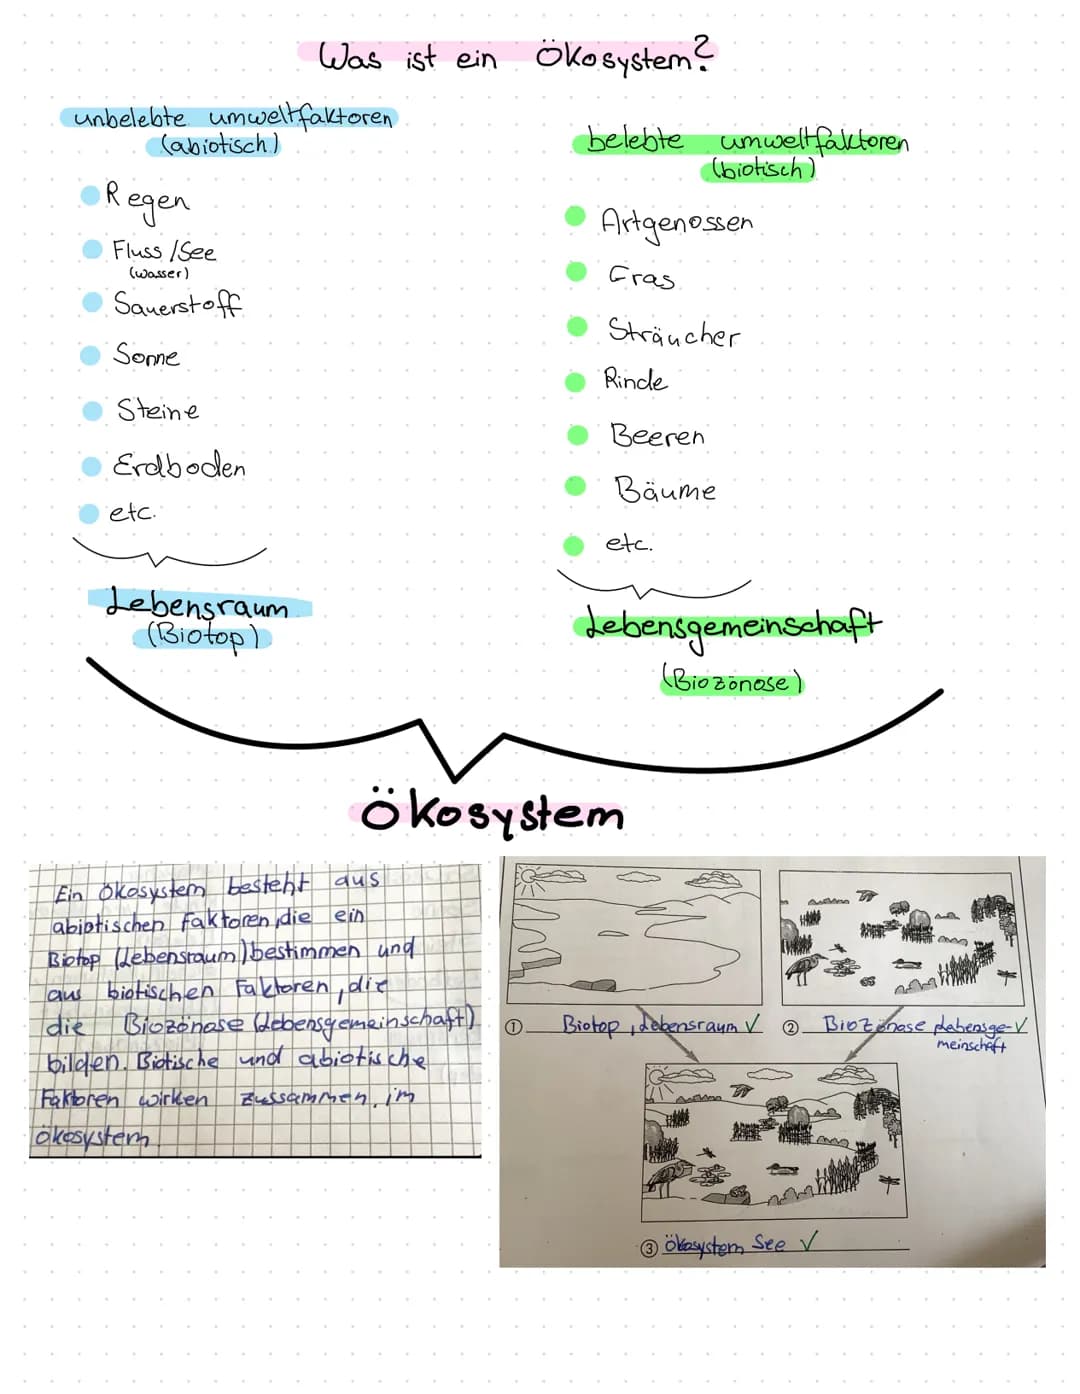 Was ist ein Ökosystem?
unbelebte umweltfaktoren
(abiotisch)
Regen
Fluss/See
(wasser)
Sauerstoff
Sonne
Steine
Erdboden
etc.
Lebensraum
(Biotop)
belebte umweltfaktoren
(biotisch)
Artgenossen
Gras
Sträucher
Rinde
Beeren
Bäume
etc.
Lebensgemeinschaft
(Biozönose)
Ökosystem
Ein Ökosystem besteht aus
abiotischen Faktoren, die ein
Biotop (Lebensraum) bestimmen und
aus biotischen Faktoren, die
die Biozönose (Lebensgemeinschaft)
bilden. Biotische und abiotische
Faktoren wirken zussammen im
Ökosystem.
① Biotop, Lebensraum ✓
② Biozönose Lebensge- ✓
meinschaft
③ Ökosystem See ✓